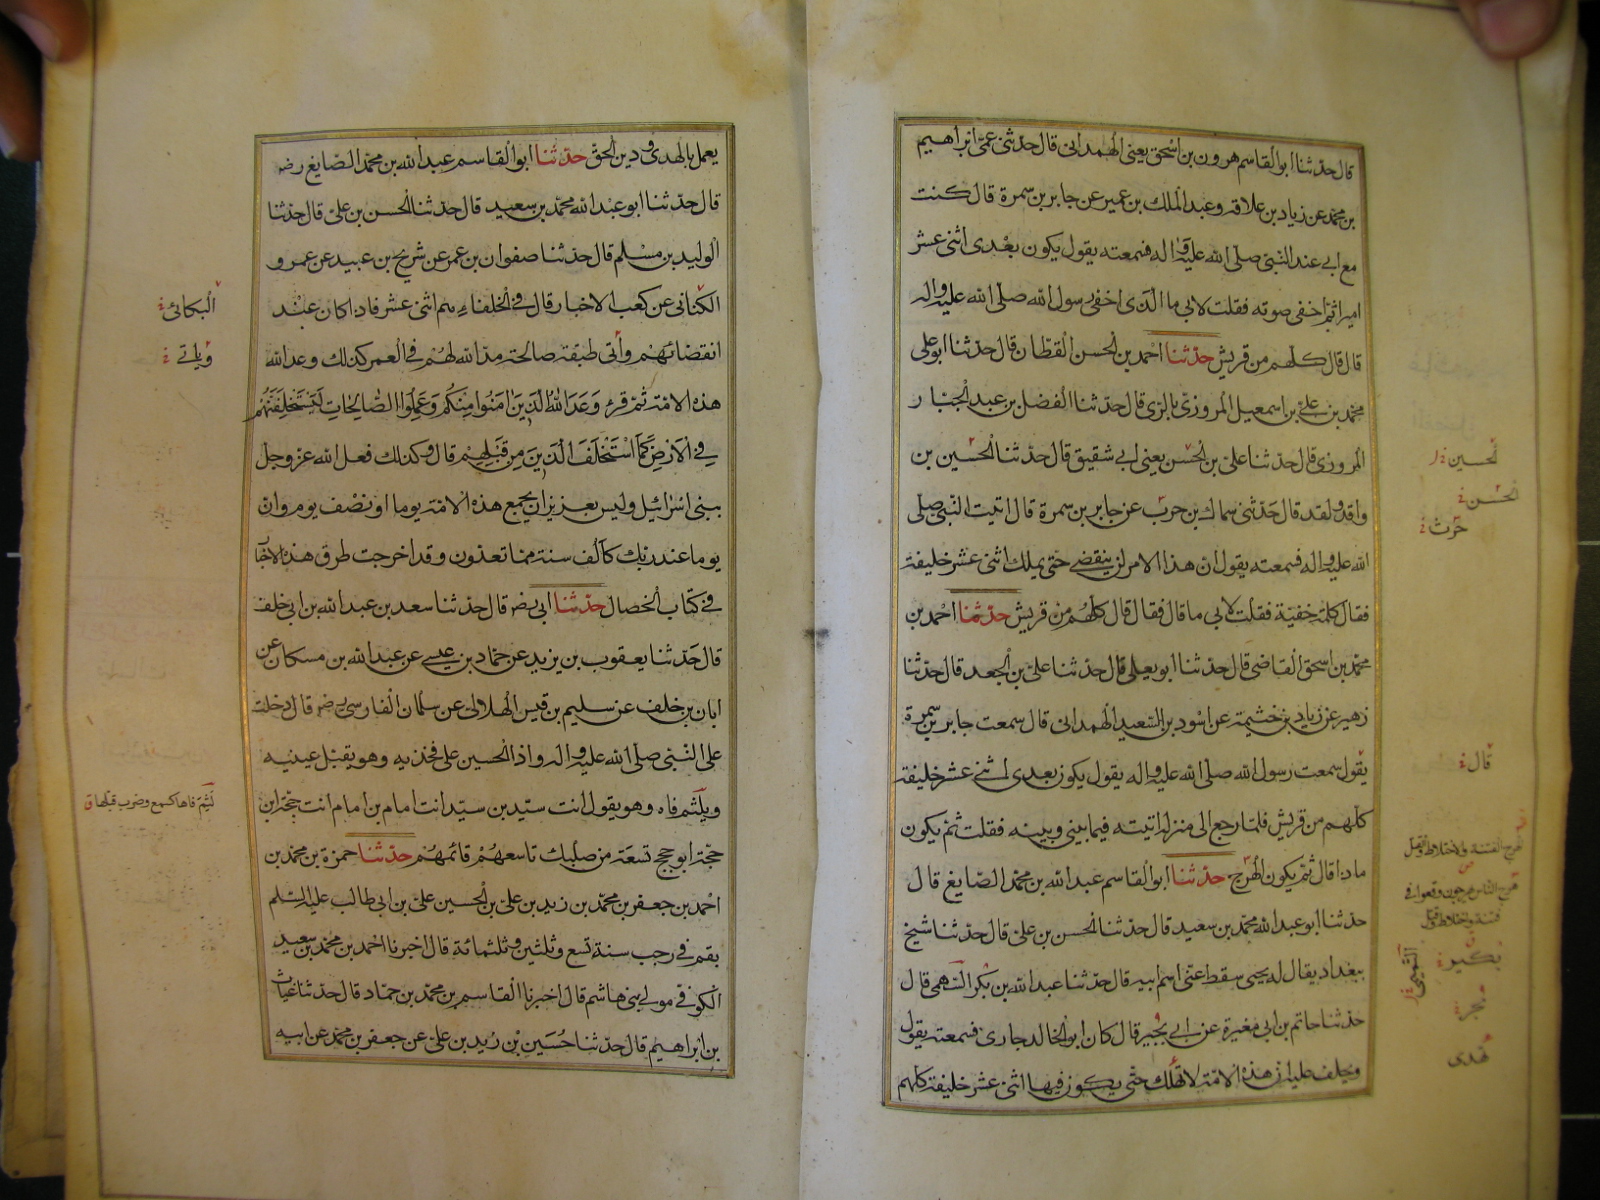 قال حدثنا ابو القاسم هرون بن اسحق يعنى الهمدانى قال حدثنى عمى ابراهيم
بن محمد عن زياد بن علاقه وعبد الملك بن عمير عن جابر بن سمرة قال كنت
مع ابي عند النبى صلى الله عليه واله فسمعته يقول يكون بعدى اثنى عشر
اميرا ثم اخفى صوته فقلت لابى ما الذى اخفى رسول الله صلى الله عليه واله
قال قال كلهم من قريش حدثنا احمد بن الحسن القطان قال حدثنا ابو على
محمد بن على بن اسمعيل المروزى بالرى قال حدثنا الفضل بن عبد الجبار
المروزى قال حدثنا على بن الحسن يعنى ابي شقيق قال حدثنا الحسين بن
واقد ولقد قال حدثنى سماك بن حرب عن جابر بن سمرة قال اتيت النبى صلى
الله عليه واله فسمعته يقول ان هذا الامر لن ينقضى حتى يملك اثنى عشر خليفة
فقال كلمة خفية فقلت لابى ما قال فقال قال كلهم من قريش حدثنا احمد بن
محمد بن اسحق القاضى قال حدثنا ابو يعلى قال حدثنا على بن الجعد قال حدثنا
زهير عن زياد بن خثيمة عن اسود بن السعيد الهمدانى قال سمعت جابر بن سمرة
يقول سمعت رسول الله صلى الله عليه واله يقول يكون بعدى اثنى عشر خليفة
كلهم من قريش فلما رجع الى منزله اتيته فيما بينى وبينه فقلت ثم يكون
ماذا قال ثم يكون الهرج حدثنا ابو القاسم عبد الله بن محمد الصايغ قال
حدثنا ابو عبد الله محمد بن سعيد قال حدثنا الحسن بن على قال حدثنا شيخ
ببغداد يقال له يحيى سقط عنى اسم ابيه قال حدثنا عبد الله بن بكر السهمى قال
حدثنا حاتم بن ابى مغيرة عن ابي بحير قال كان ابو الخالد جارى فسمعته يقول
ويحلف عليه ان هذه الامة لا تهلك حتى يكون فيها اثنى عشر خليفة كلهم
الحسين
الحسن
حرث
قال
بكير
بحر
تهدى
يعمل بالهدى ودين الحق حدثنا ابو القاسم عبد الله بن محمد الصايغ رضه
قال حدثنا ابو عبد الله محمد بن سعيد قال حدثنا الحسن بن على قال حدثنا
الوليد بن مسلم قال حدثنا صفوان بن عمر عن شريح بن عبيد عن عمرو
الكنانى عن كعب الاخبار قال فى الخلفاء هم اثنى عشر فاذا كان عند
انقضائهم واتى طبقة صالحة مد الله لهم فى العمر كذلك وعد الله
هذه الامة ثم قرء وعد الله الذين امنوا منكم وعملوا الصالحات ليستخلفنهم
فى الارض كما استخلف الذين من قبلهم قال وكذلك فعل الله عز وجل
ببنى اسرائيل وليس بعزيز ان يجمع هذه الامة يوما او نصف يوم وان
يوما عند ربك كالف سنة مما تعدون وقد اخرجت طرق هذه الاخبار
فى كتاب الخصال حدثنا ابى رضه قال حدثنا سعد بن عبد الله بن ابى خلف
قال حدثنا يعقوب بن يزيد عن حماد بن عيسى عن عبد الله بن مسكان عن
ابان بن خلف عن سليم بن قيس الهلالى عن سلمان الفارسى رضه قال دخلت
على النبى صلى الله عليه واله واذ الحسين على فخذيه وهو يقبل عينيه
ويلثم فاه وهو يقول انت سيد بن سيد انت امام بن امام انت حجة ابن
حجة ابو حجج تسعة من صلبك تاسعهم قائمهم حدثنا حمزة بن محمد بن
احمد بن جعفر بن محمد بن زيد بن على بن الحسين على بن ابى طالب عليه السلم
بقم فى رجب سنة تسع وثلثين وثلثمائة قال اخبرنا احمد بن محمد بن سعيد
الكوفى مولى بنى هاشم قال اخبرنا القاسم بن محمد بن حماد قال حدثنا غياث
بن ابراهيم قال حدثنا حسين بن زيد بن على عن جعفر بن محمد عن ابيه
البكائى
وياتى
لثم فاها كسمع وضرب قبلها ق